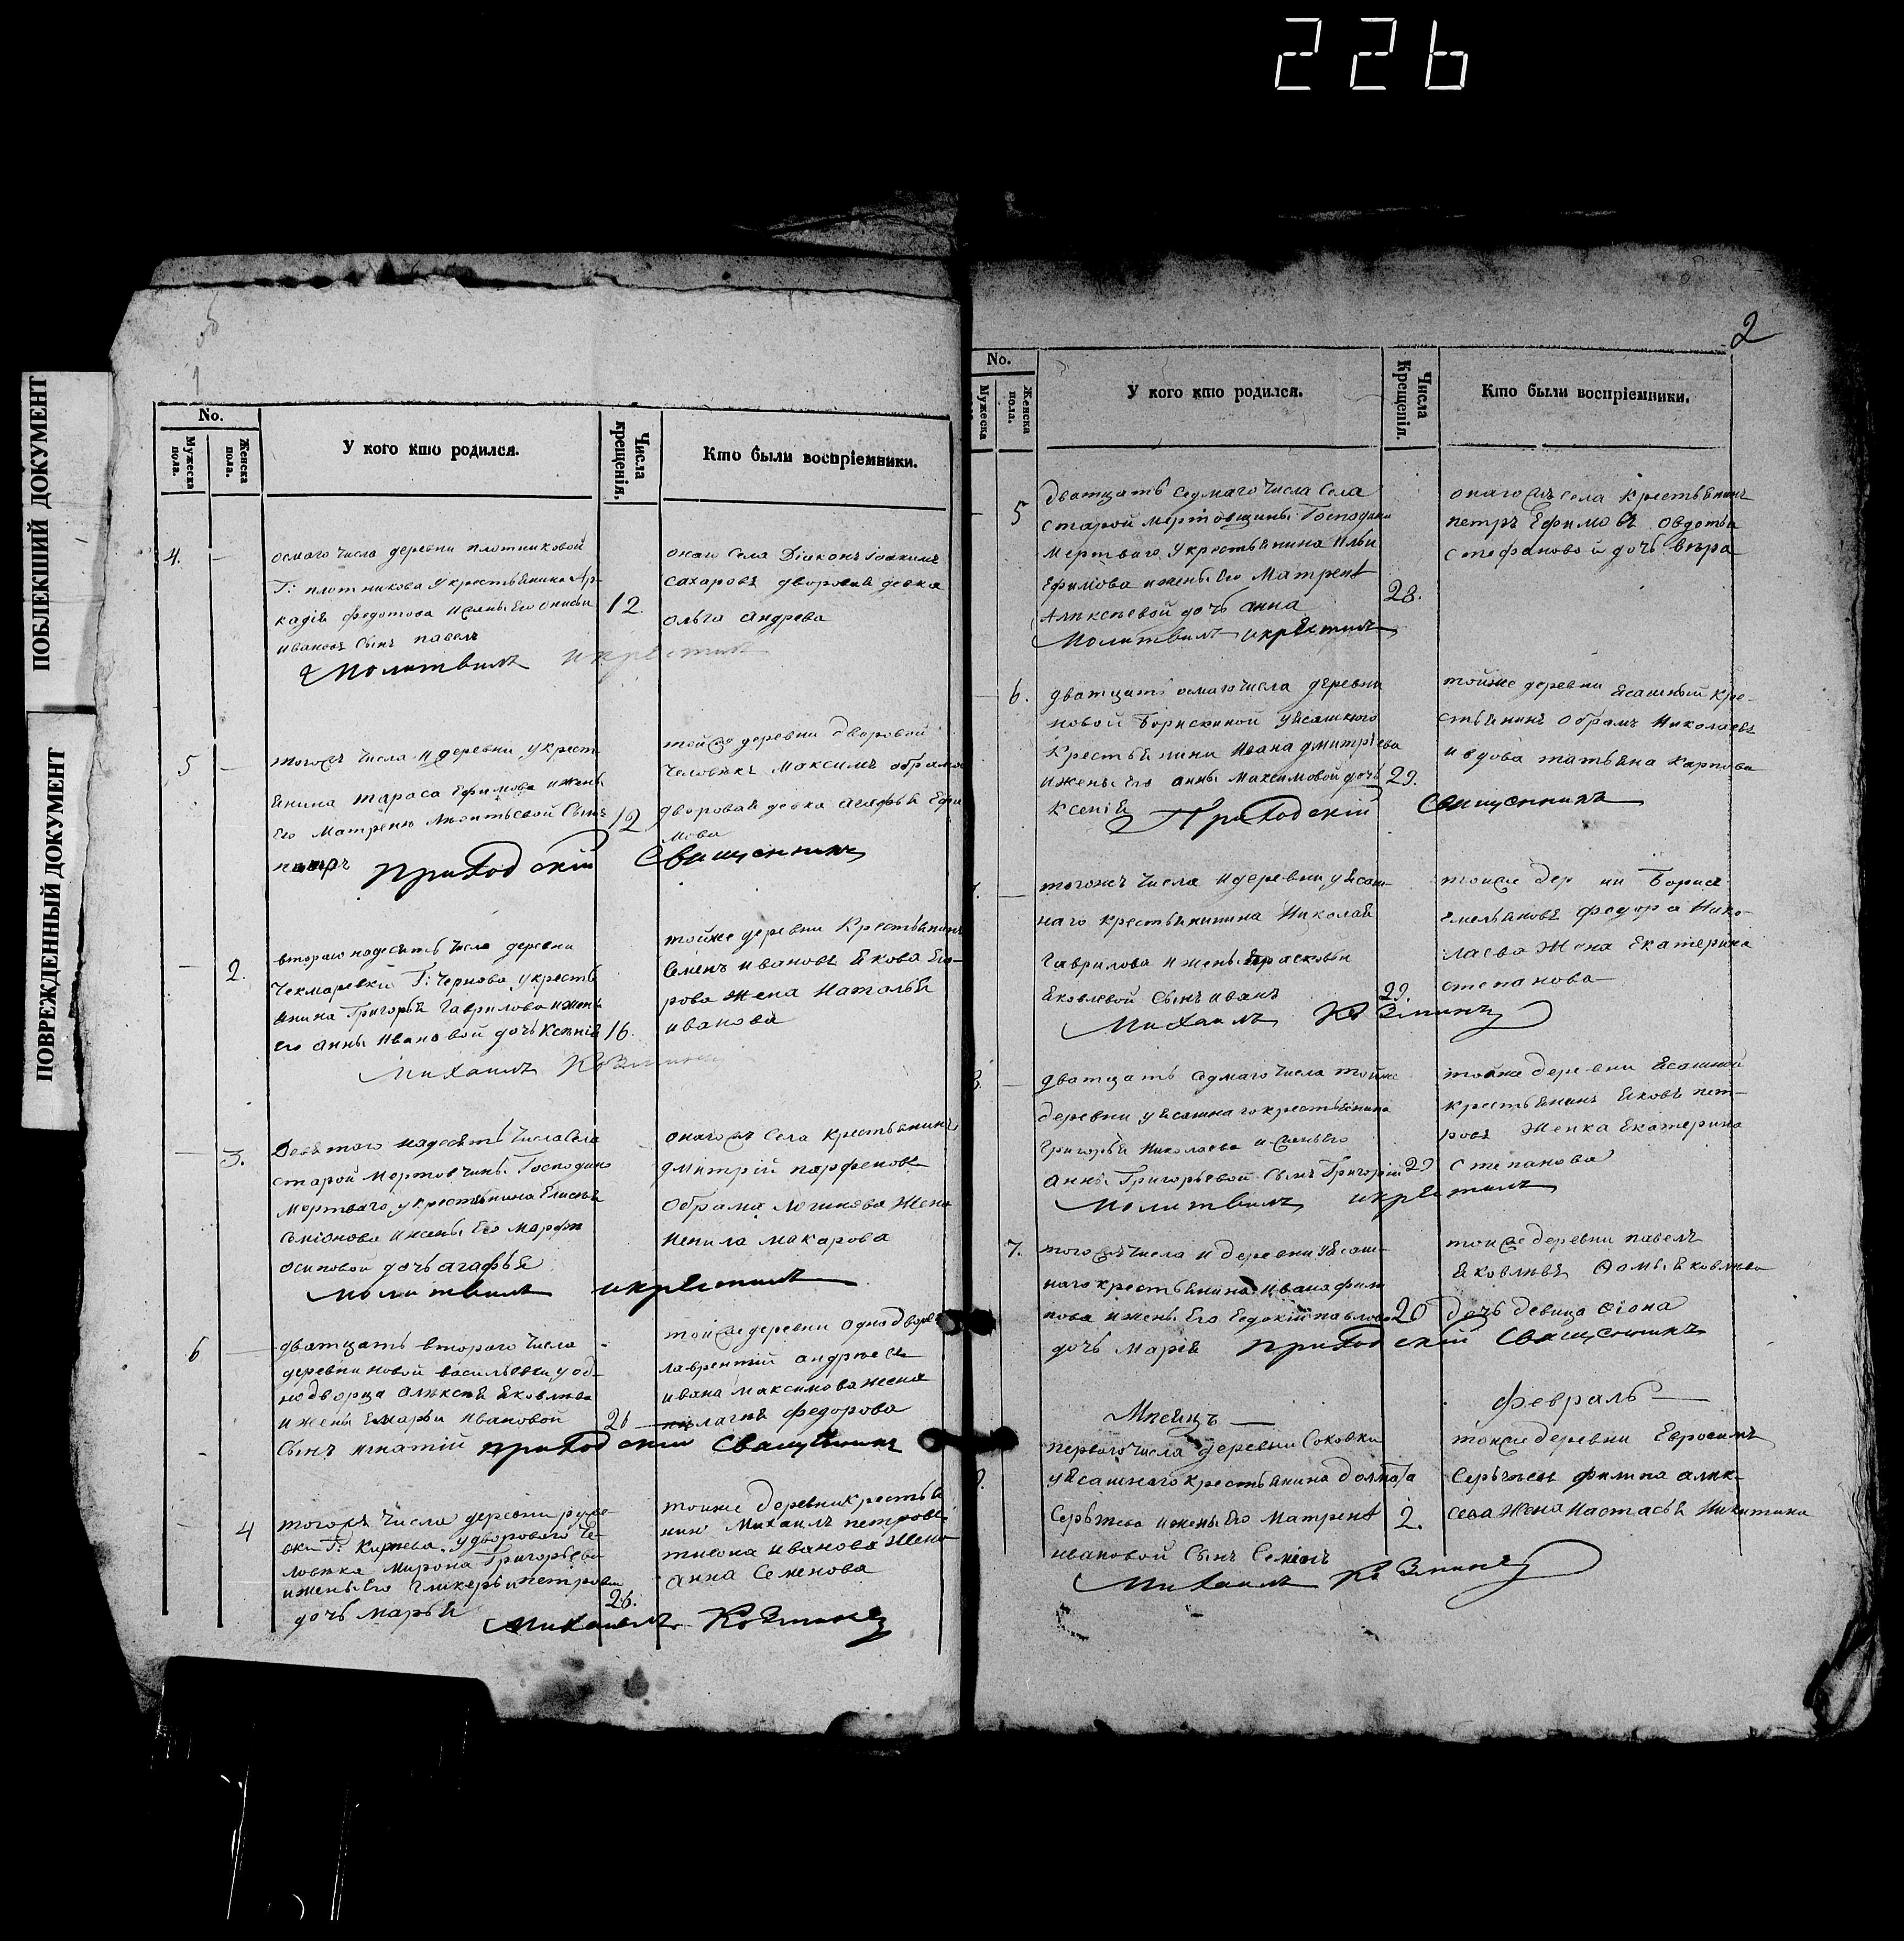 226
ПОБЛЕКШИЙ ДОКУМЕНТ
ПОВРЕЖДЕННЫЙ ДОКУМЕНТ
No.
Мужеска пола.
Женска пола.
У кого кто родился.
Числа крещенія.
Кто были воспріемники.
4.
осмаго числа деревни плотниковой
Г: плотникова у крестьянина Ар-
кадія федотова и жены его
ивановой сынъ павелъ
Молитвилъ и крестилъ
12.
онаго села Діаконъ Іоакимъ
сахаровъ дворовая девка
ольга андреева
5
тогожъ числа и деревни у крест-
янина тараса ефимова и жены
его матрены леонтьевой сынъ
петръ приходскій Священникъ
12
тойже деревни дворовой
человѣкъ максимъ обрамов
дворовая девка агафья ефи
мова
2.
второго надесять числа деревни
Чекмаревки Г: Чернова у кресть
янина Григорья Гаврилова и жены
его анны ивановой дочь Ксенія
Михаилъ Козминъ
16.
тойже деревни Крестьянинъ
Семенъ ивановъ якова его-
рова жена наталья
иванова
3.
Девятого надесять числа села
старой мертовчины Господина
мертваго у крестьянина
семіонова и жены его марфы
осиповой дочь агафья
молитвилъ и крестилъ
онагожъ села крестьянинъ
дмитрій парфеновъ
обрама логинова жена
ненила макарова
6
дватцать второго числа
деревни новой васильевки у од-
нодворца алексея яковлева
и жены марьи ивановой
сынъ игнатій приходскій Священникъ
26
тойже деревни однодворец
лаврентій андреевъ
ивана максимова жена
пелагея федорова
4
тогожъ числа деревни
Г: Киреева у дворового че-
ловека Мирона Григорьева
и жены его гликерьи петровой
дочь марья
Михаилъ Козминъ
26.
тойже деревни крестья
нин Михаилъ петровъ
тихона иванова жена
анна Семенова
2
No.
Мужеска
Женска пола.
У кого кто родился.
Числа Крещенія.
Кто были воспріемники.
5
дватцать седмаго числа села
старой мертовщины Господина
мертваго у крестьянина ильи
Ефимова и жены его Матрены
Алексеевой дочь анна
Молитвилъ и крестилъ
28.
онагожъ села крестьянинъ
петръ Ефимовъ овдотьи
стефановой дочь вера
6.
дватцать осмаго числа деревни
новой борискиной у ясашного
Крестьянина ивана дмитриева
и жены его анны максимовой дочь
ксенія Приходскій Священникъ
29.
тойже деревни ясашный кре-
стьянинъ обрамъ николаевъ
и вдова татьяна карпова
тогожъ числа и деревни у ясаш-
наго крестьянина николая
Гаврилова и жены прасковьи
яковлевой сынъ иванъ
Михаилъ Козминъ
29.
тойже дер ни Борисъ
емельяновъ федора нико-
лаева жена екатерина
степанова
8.
дватцать седмаго числа тойже
деревни у ясашнаго крестьянина
григорья николаева и жены его
анны Григорьевой сынъ Григорій
Молитвилъ и крестилъ
29
тойже деревни ясашный
крестьянинъ яковъ пет-
ровъ женка екатерина
степанова
7.
тогожъ числа и деревни у ясаш-
наго крестьянина ивана филип
пова и жены его евдокіи павловой
дочь марія приходскій Священникъ
тойже деревни павелъ
яковлевъ фомы яковлева
дочь девица
Месяцъ — февраль —
первого числа деревни Соковки
у ясашнаго крестьянина долмата
Сергеева и жены его матрены
ивановой сынъ Семіонъ
Михаилъ Козминъ
2.
тойже деревни Евросимъ
Сергеевъ филипа алек-
сеева жена настасья Никитина